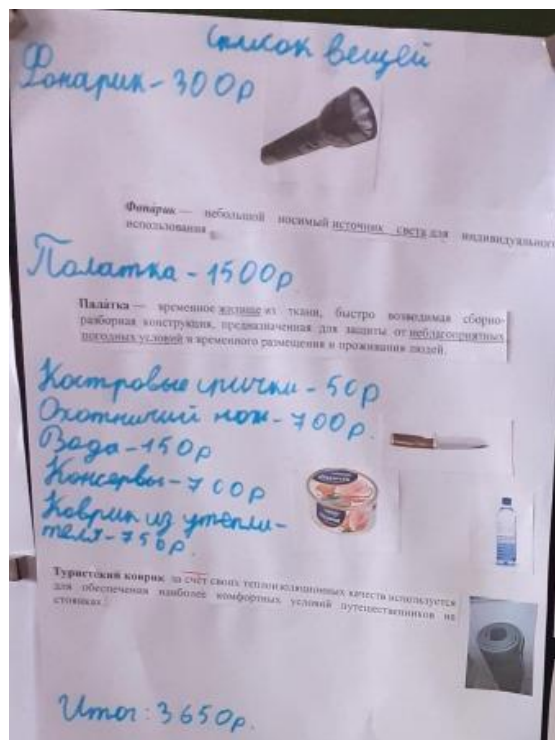 Список вещей
Фонарик - 300р
Фонарик — небольшой носимый источник света для индивидуального
использования
Палатка - 1500р
Палатка — временное жилище из ткани, быстро возводимая сборно-
разборная конструкция, предназначенная для защиты от неблагоприятных
погодных условий и временного размещения и проживания людей.
Костровые спички - 50р
Охотничий нож - 700р.
Вода - 150р
Консервы - 700р
Коврик из утепли-
теля - 750р.
Туристский коврик за счёт своих теплоизоляционных качеств используется
для обеспечения наиболее комфортных условий путешественников на
стоянках.
Итог: 3650р.